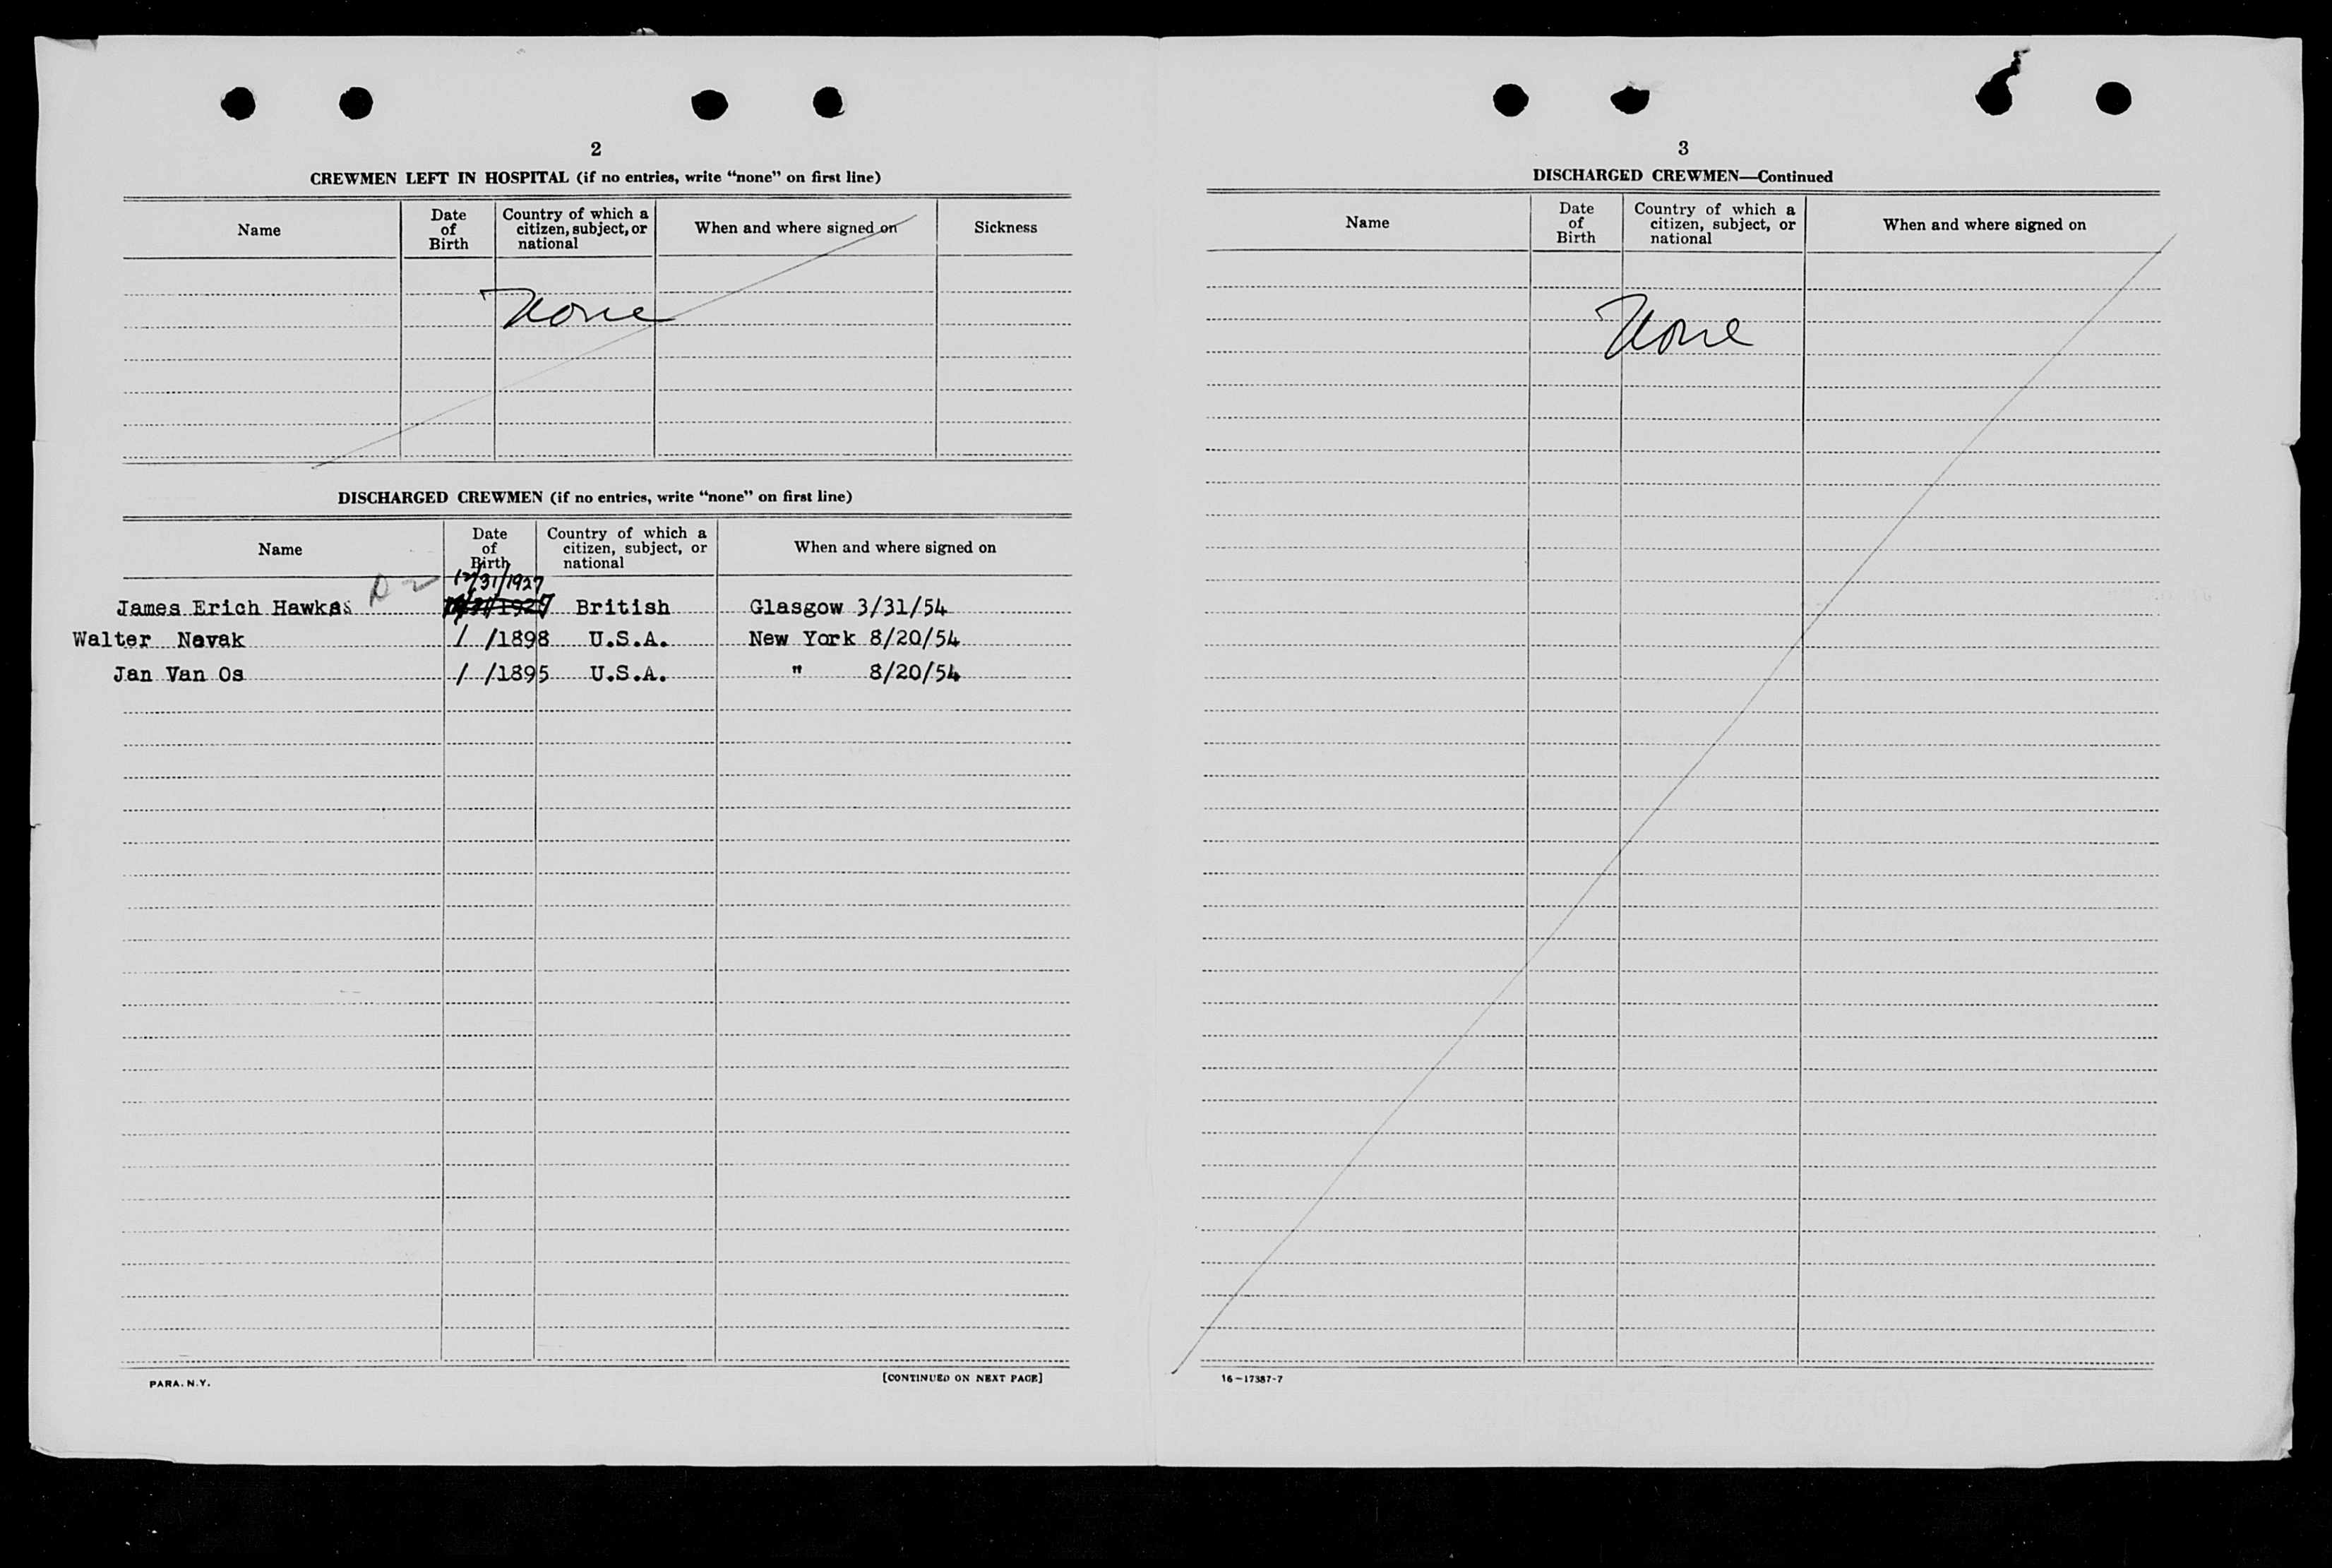 2
CREWMEN LEFT IN HOSPITAL (if no entries, write "none" on first line)
Name Date of Birth Country of which a citizen, subject, or national When and where signed on Sickness
None
DISCHARGED CREWMEN (if no entries, write "none" on first line)
Name Date of Birth Country of which a citizen, subject, or national When and where signed on
12/31/1927
James Erich Hawkes British Glasgow 3/31/54
Walter Novak / /1898 U.S.A. New York 8/20/54
Jan Van Os / /1895 U.S.A. " 8/20/54
PARA. N.Y. [CONTINUED ON NEXT PAGE]
3
DISCHARGED CREWMEN—Continued
Name Date of Birth Country of which a citizen, subject, or national When and where signed on
None
16—17387-7